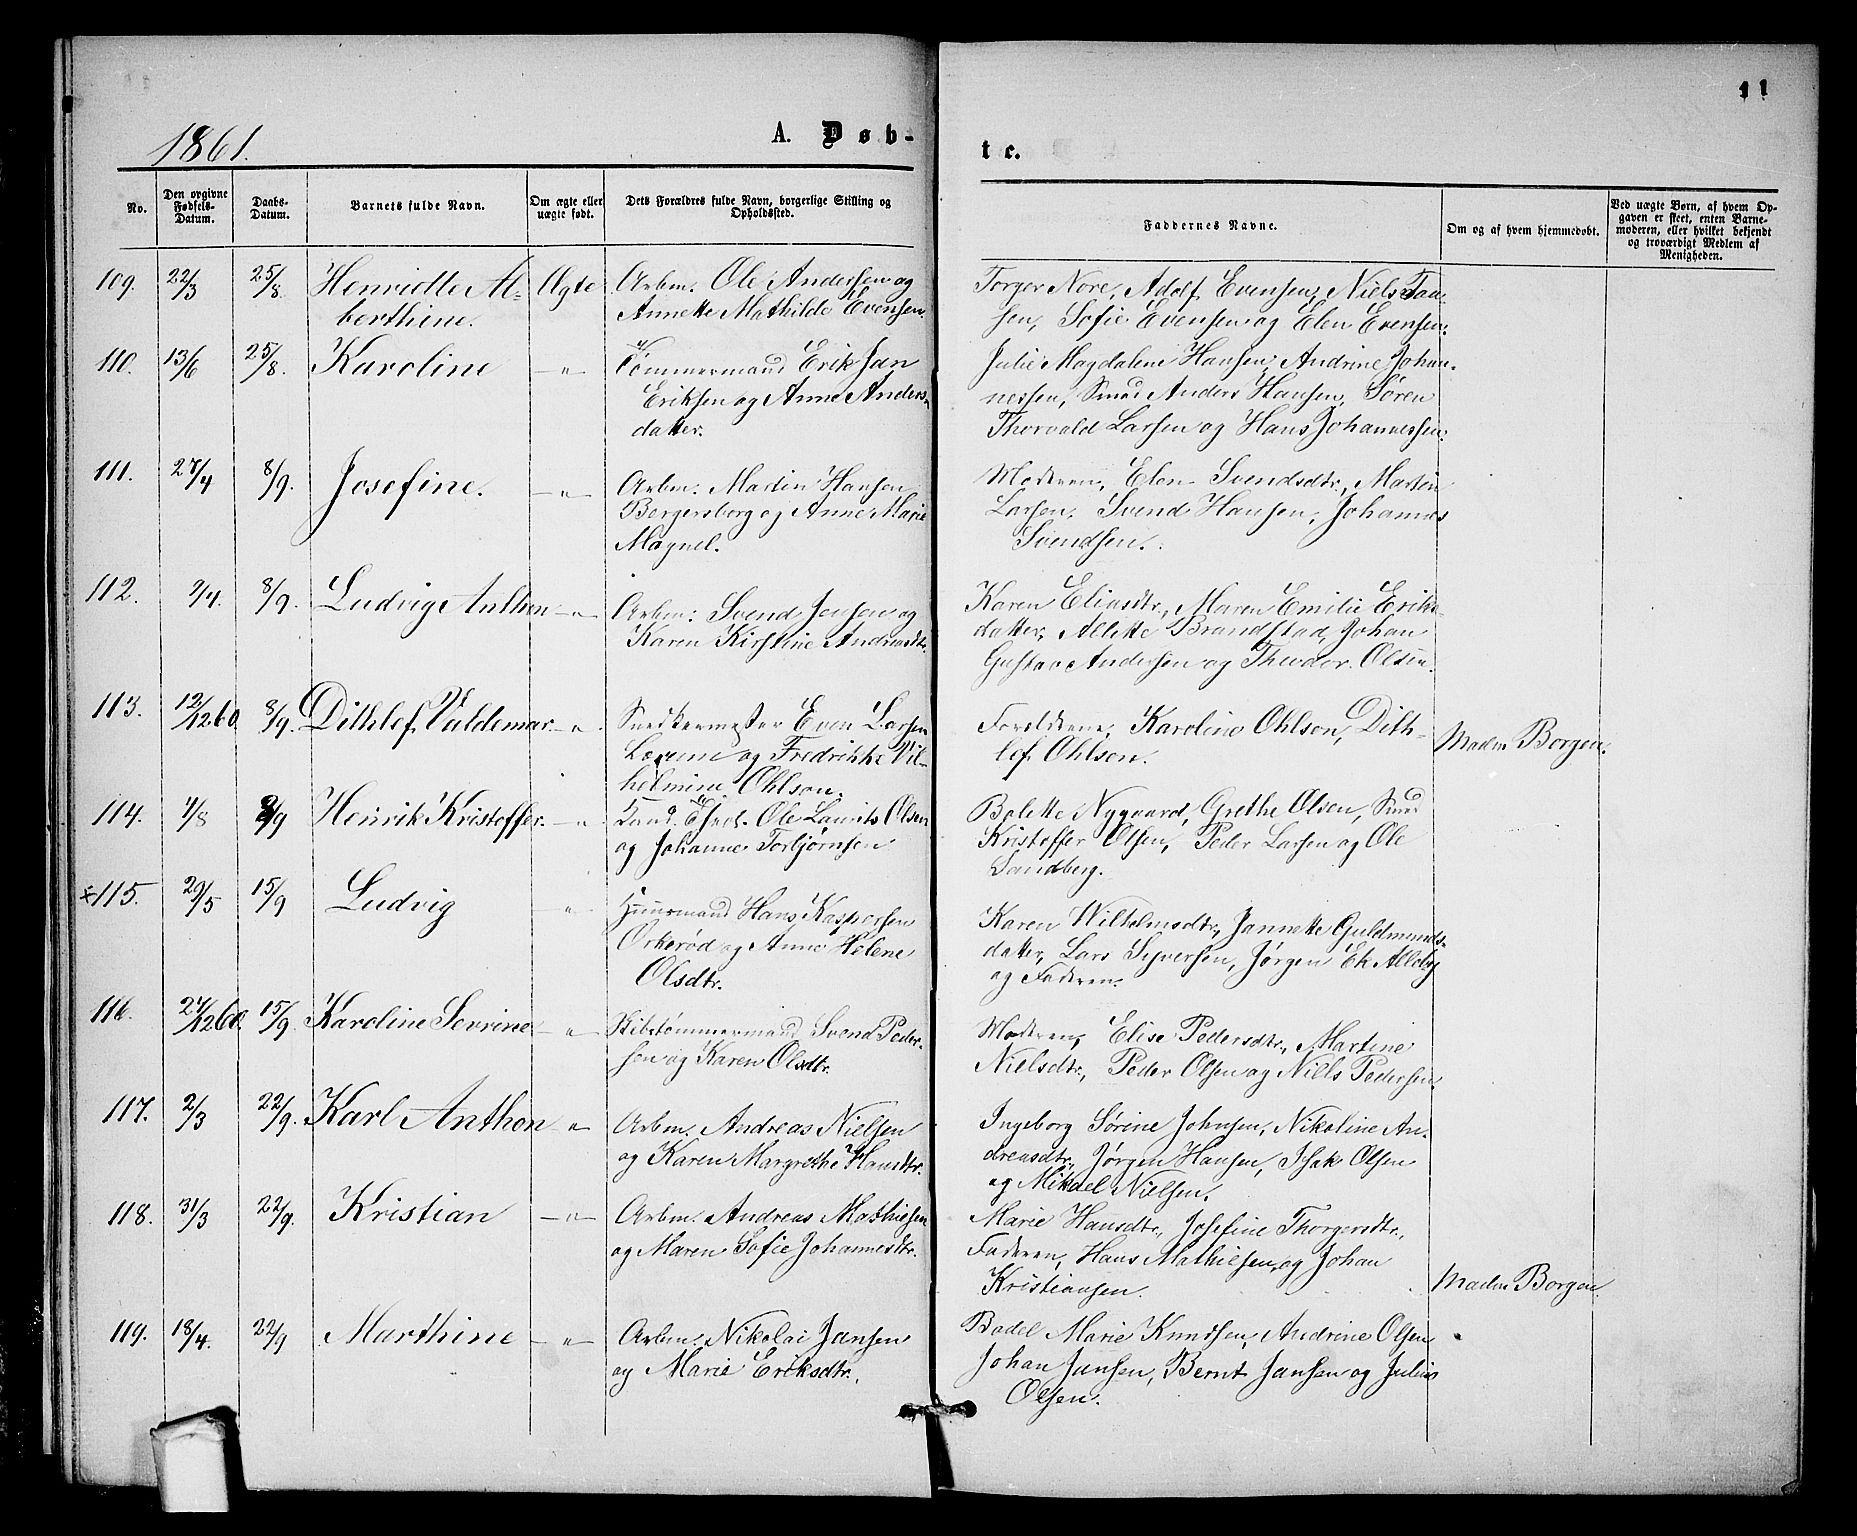 11
1861.
A. Døb-
te.
No.
Den opgivne
Fødsels-
Datum.
Daabs-
Datum.
Barnets fulde Navn.
Om ægte eller
uægte født.
Dets Forældres fulde Navn, borgerlige Stilling og
Opholdssted.
Faddernes Navne.
Om og af hvem hjemmedøbt.
Ved uægte Børn, af hvem Op-
gaven er skeet, enten Barne-
moderen, eller hvilket bekjendt
og troværdigt Medlem af
Menigheden.
109. 22/3 25/8. Henridte Al- Ægte Arbm. Ole Andersen og
berthine. Annette Mathilde Evensen.
Torger Nore, Adolf Evensen, Niels Jan-
sen, Sofie Evensen og Elen Evensen.
110. 13/6 25/8. Karoline -"- Tømmermand Erik Jan
Eriksen og Anne Anders-
datter.
Julie Magdalene Hansen, Andrine Johan-
nessen, Smed Anders Hansen, Søren
Thorvald Larsen og Hans Johannessen.
111. 27/4 8/9. Josefine. -"- Arbm. Martin Hansen
Bergersborg og Anne Marie
Magnel.
Moderen, Elen Svendsdtr., Martin
Larsen, Svend Hansen, Johannes
Svendsen.
112. 9/4. 8/9. Ludvig Anthon -"- Arbm: Svend Jensen og
Karen Kirstine Andreasdtr.
Karen Eliasdtr., Maren Emilie Eriks-
datter, Allette Brandstad, Johan
Gustav Andersen og Theodor Olsen.
113. 12/12 60. 8/9. Dithlef Valdemar -"- Snedkermester Even Larsen
og Fredrikke Vil-
helmine Ohlson.
Forældrene, Karoline Ohlson, Dith-
lef Ohlson.
Madm Borgen.
114. 4/8 8/9 Henrik Kristoffer. -"- Ole Laurits Olsen
og Johanne Torbjørnsen
Bolette Nygaard, Grethe Olsen, Smed
Kristoffer Olsen, Peder Larsen og Ole
Sandberg.
×115. 20/5 15/9 Ludvig -"- Huusmand Hans Kaspersen
Orkerød og Anne Helene
Olsdtr.
Karen Wilhelmsdtr., Jannette Guldmunds-
datter, Lars Syversen, Jørgen Ek Alleby
og Faderen.
116. 27/12 60. 15/9. Karoline Severine -"- Skibstømmermand Svend Peder-
sen og Karen Olsdtr.
Moderen, Elise Pedersdtr., Martine
Nielsdtr., Peder Olsen og Niels Pedersen.
117. 2/3 22/9. Karl Anthon -"- Arbm. Andreas Nielsen
og Karen Margrethe Hansdtr.
Ingeborg Sørine Johnsen, Nikoline An-
dreasdtr., Jørgen Hansen, Isak Olsen
og Mikael Nielsen.
118. 31/3 22/9. Kristian -"- Arbm. Andreas Mathiesen
og Maren Sofie Johannesdtr.
Marie Hansdtr., Josefine Thorgersdtr.,
Faderen, Hans Mathiesen, og Johan
Kristiansen.
Madm Borgen.
119. 18/4. 22/9 Marthine -"- Arbm. Nikolai Jansen
og Marie Eriksdtr.
Bodel Marie Knudsen, Andrine Olsen
Johan Jansen, Bernt Jansen og Julius
Olsen.